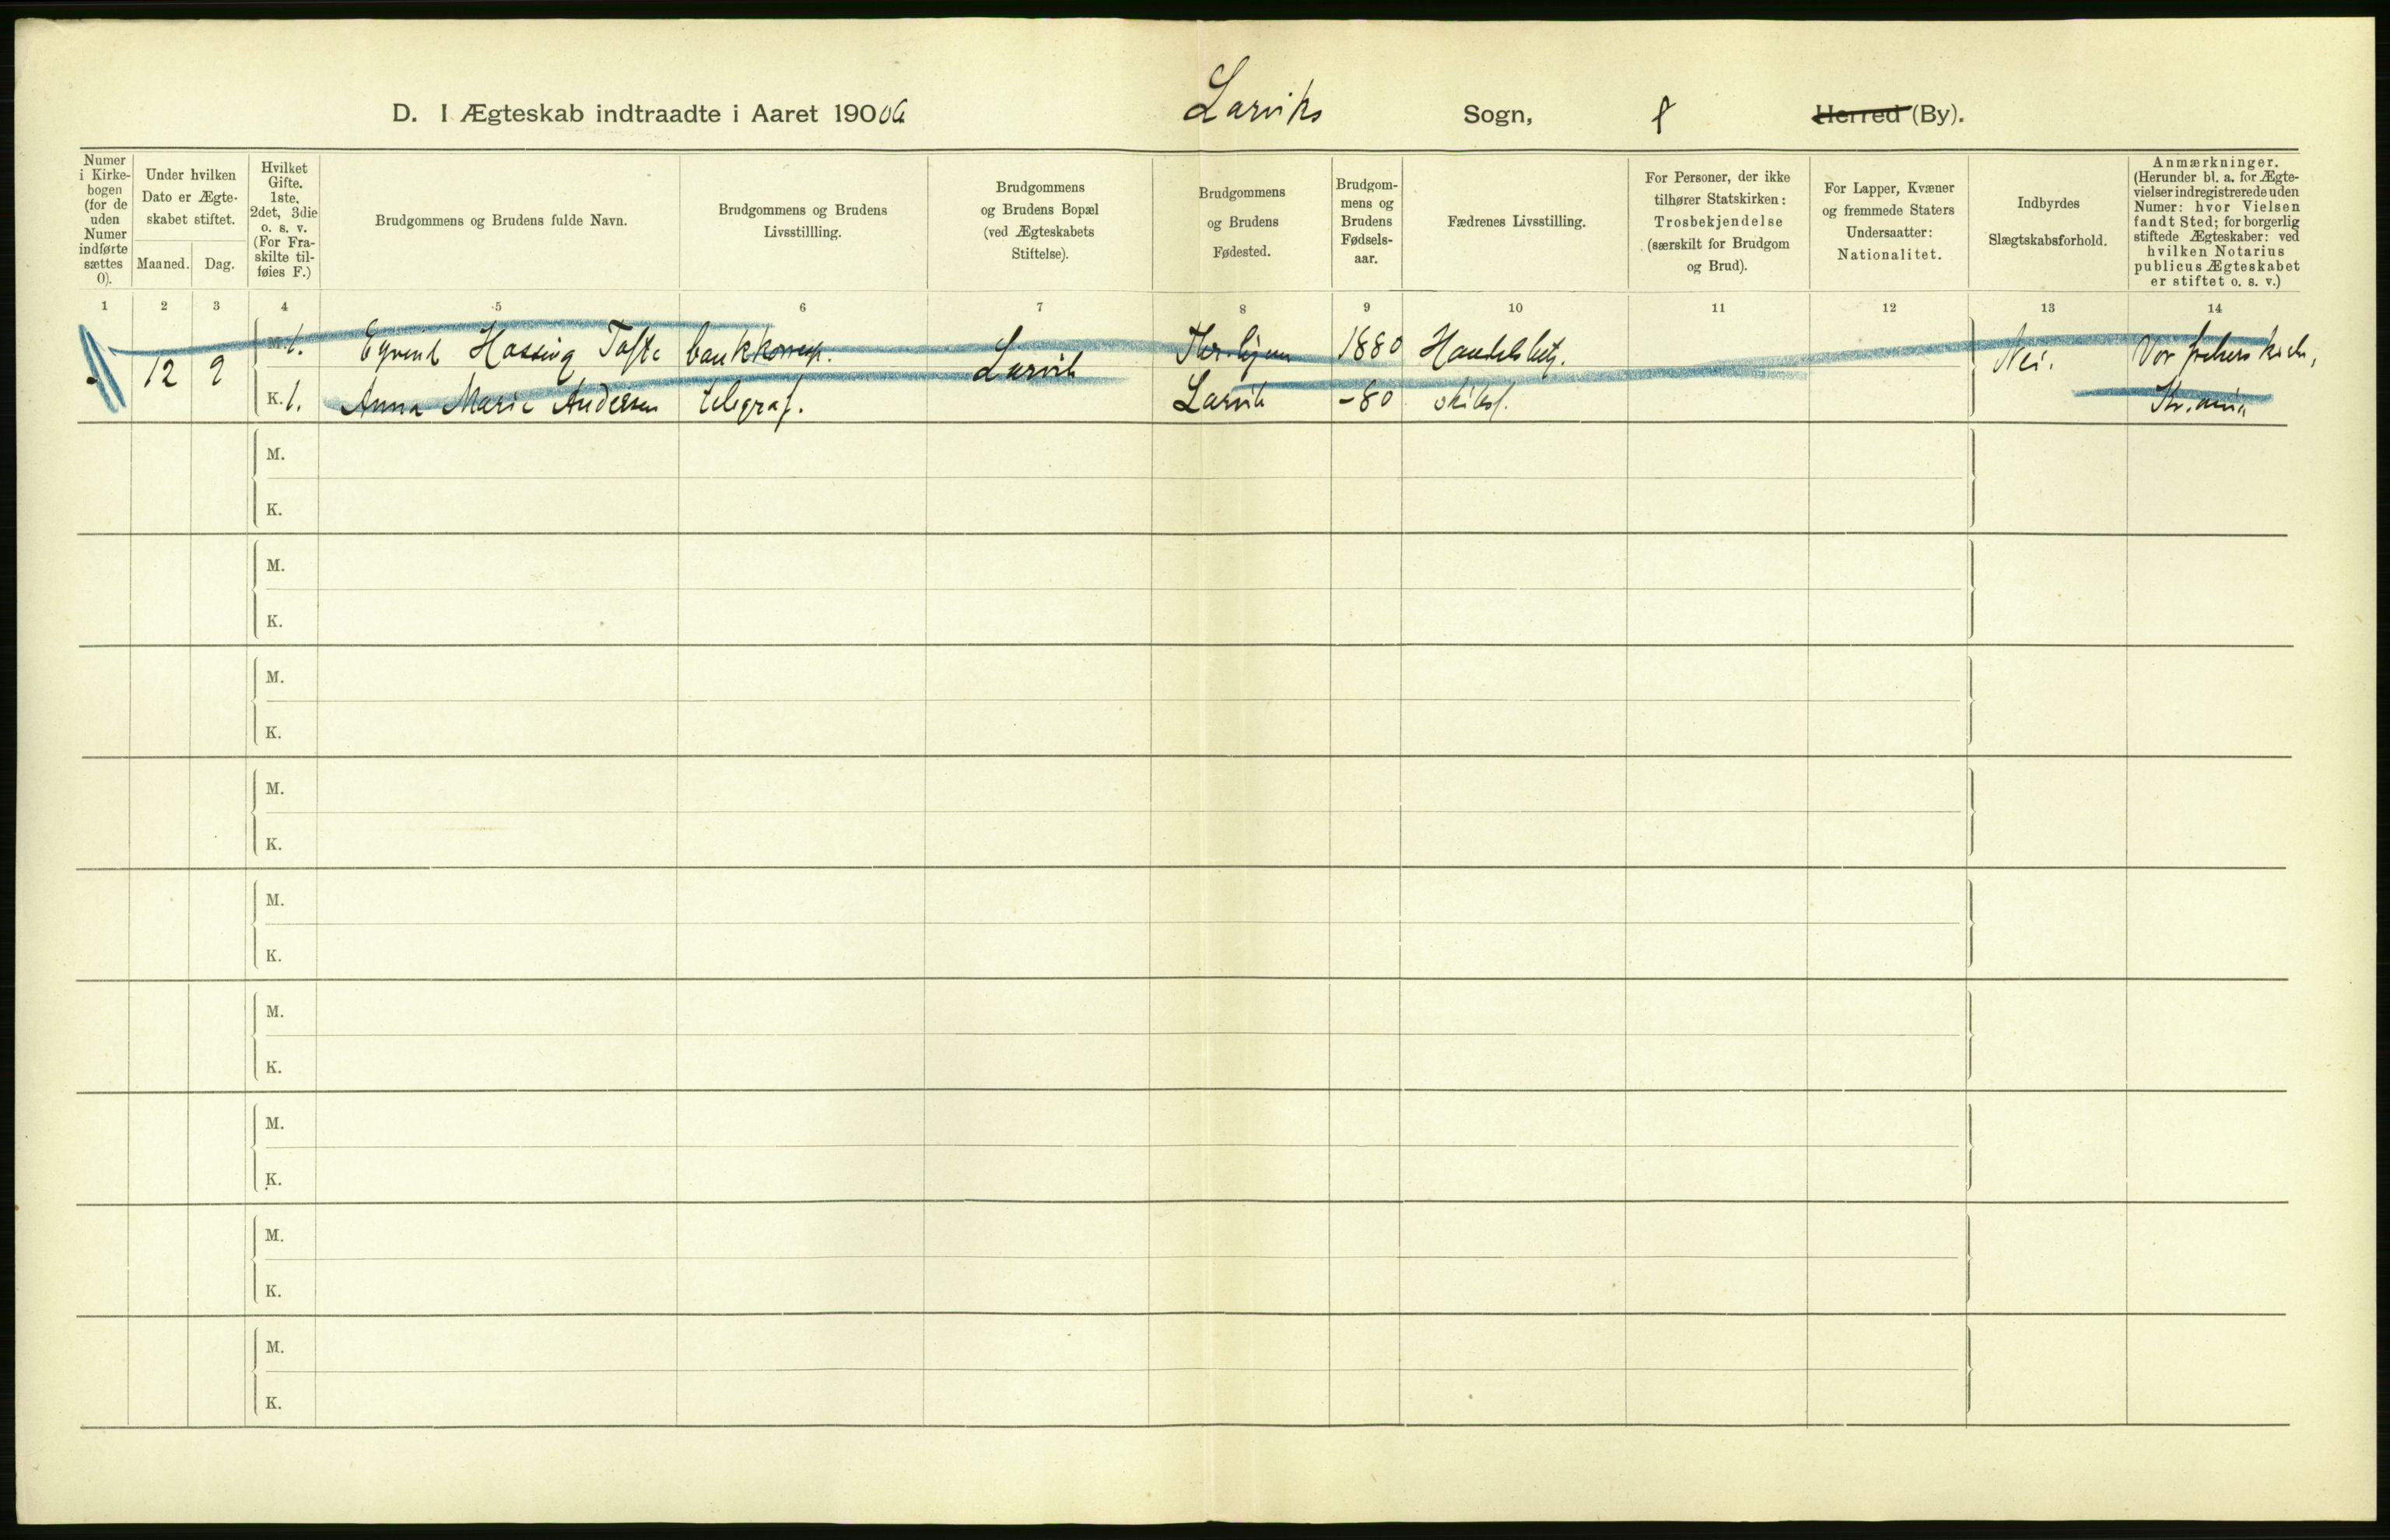 D. I Ægteskab indtraadte i Aaret 1906 Larviks Sogn, Herred (By).
Numer i Kirkebogen (for de uden Numer indførte sættes 0).
Under hvilken Dato er Ægteskabet stiftet.
Maaned. Dag.
Hvilket Gifte. 1ste, 2det, 3die o. s. v. (For Fraskilte tilføies F.)
Brudgommens og Brudens fulde Navn.
Brudgommens og Brudens Livsstillling.
Brudgommens og Brudens Bopæl (ved Ægteskabets Stiftelse).
Brudgommens og Brudens Fødested.
Brudgommens og Brudens Fødselsaar.
Fædrenes Livsstilling.
For Personer, der ikke tilhører Statskirken: Trosbekjendelse (særskilt for Brudgom og Brud).
For Lapper, Kvæner og fremmede Staters Undersaatter: Nationalitet.
Indbyrdes Slægtskabsforhold.
Anmærkninger. (Herunder bl. a. for Ægtevielser indregistrerede uden Numer: hvor Vielsen fandt Sted; for borgerlig stiftede Ægteskaber: ved hvilken Notarius publicus Ægteskabet er stiftet o. s. v.)
1 2 3 4 5 6 7 8 9 10 11 12 13 14
M. 1. Eyvind Hassing Tofte bankkorresp. 1880 Nei. Vor frelsers kirke,
12 2 Larvik
K. 1. Anna Marie Andersen telegraf. Larvik -80 skibsf. Kr.ania
M.
K.
M.
K.
M.
K.
M.
K.
M.
K.
M.
K.
M.
K.
M.
K.
M.
K.